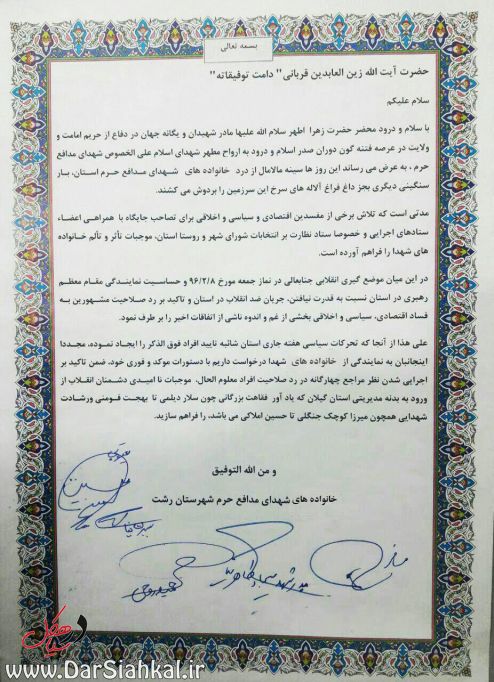 بسمه تعالی
حضرت آیت الله زین العابدین قربانی" دامت توفیقاته"
سلام علیکم
با سلام و درود محضر حضرت زهرا اطهر سلام الله علیها مادر شهیدان و یگانه جهان در دفاع از حریم امامت و
ولایت در عرصه فتنه گون دوران صدر اسلام و درود به ارواح مطهر شهدای اسلام علی الخصوص شهدای مدافع
حرم ، به عرض می رساند این روز ها سینه مالامال از درد خانواده های شهدای مدافع حرم استان، بار
سنگینی دیگری بجز داغ فراغ آلاله های سرخ این سرزمین را بردوش می کشند.
مدتی است که تلاش برخی از مفسدین اقتصادی و سیاسی و اخلاقی برای تصاحب جایگاه با همراهی اعضاء
ستادهای اجرایی و خصوصا ستاد نظارت بر انتخابات شورای شهر و روستا استان، موجبات تأثر و تألم خانواده
های شهدا را فراهم آورده است.
در این میان موضع گیری انقلابی جنابعالی در نماز جمعه مورخ ۹۶/۲/۸ و حساسیت نمایندگی مقام معظم
رهبری در استان نسبت به قدرت نیافتن، جریان ضد انقلاب در استان و تاکید بر رد صلاحیت مشهورین به
فساد اقتصادی، سیاسی و اخلاقی بخشی از غم و اندوه ناشی از اتفاقات اخیر را بر طرف نمود.
علی هذا از آنجا که تحرکات سیاسی هفته جاری استان شائبه تایید افراد فوق الذکر را ایجاد نموده، مجددا
اینجانبان به نمایندگی از خانواده های شهدا درخواست داریم با دستورات موکد و فوری خود، ضمن تاکید بر
اجرایی شدن نظر مراجع چهارگانه در رد صلاحیت افراد معلوم الحال، موجبات نا امیدی دشمنان انقلاب از
ورود به بدنه مدیریتی استان گیلان که یاد آور فقاهت بزرگانی چون سلار دیلمی تا بهجت فومنی ورشادت
شهدایی همچون میرزا کوچک جنگلی تا حسین املاکی می باشد، را فراهم سازید.
و من الله التوفیق
خانواده های شهدای مدافع حرم شهرستان رشت
www.DarSiahkal.ir